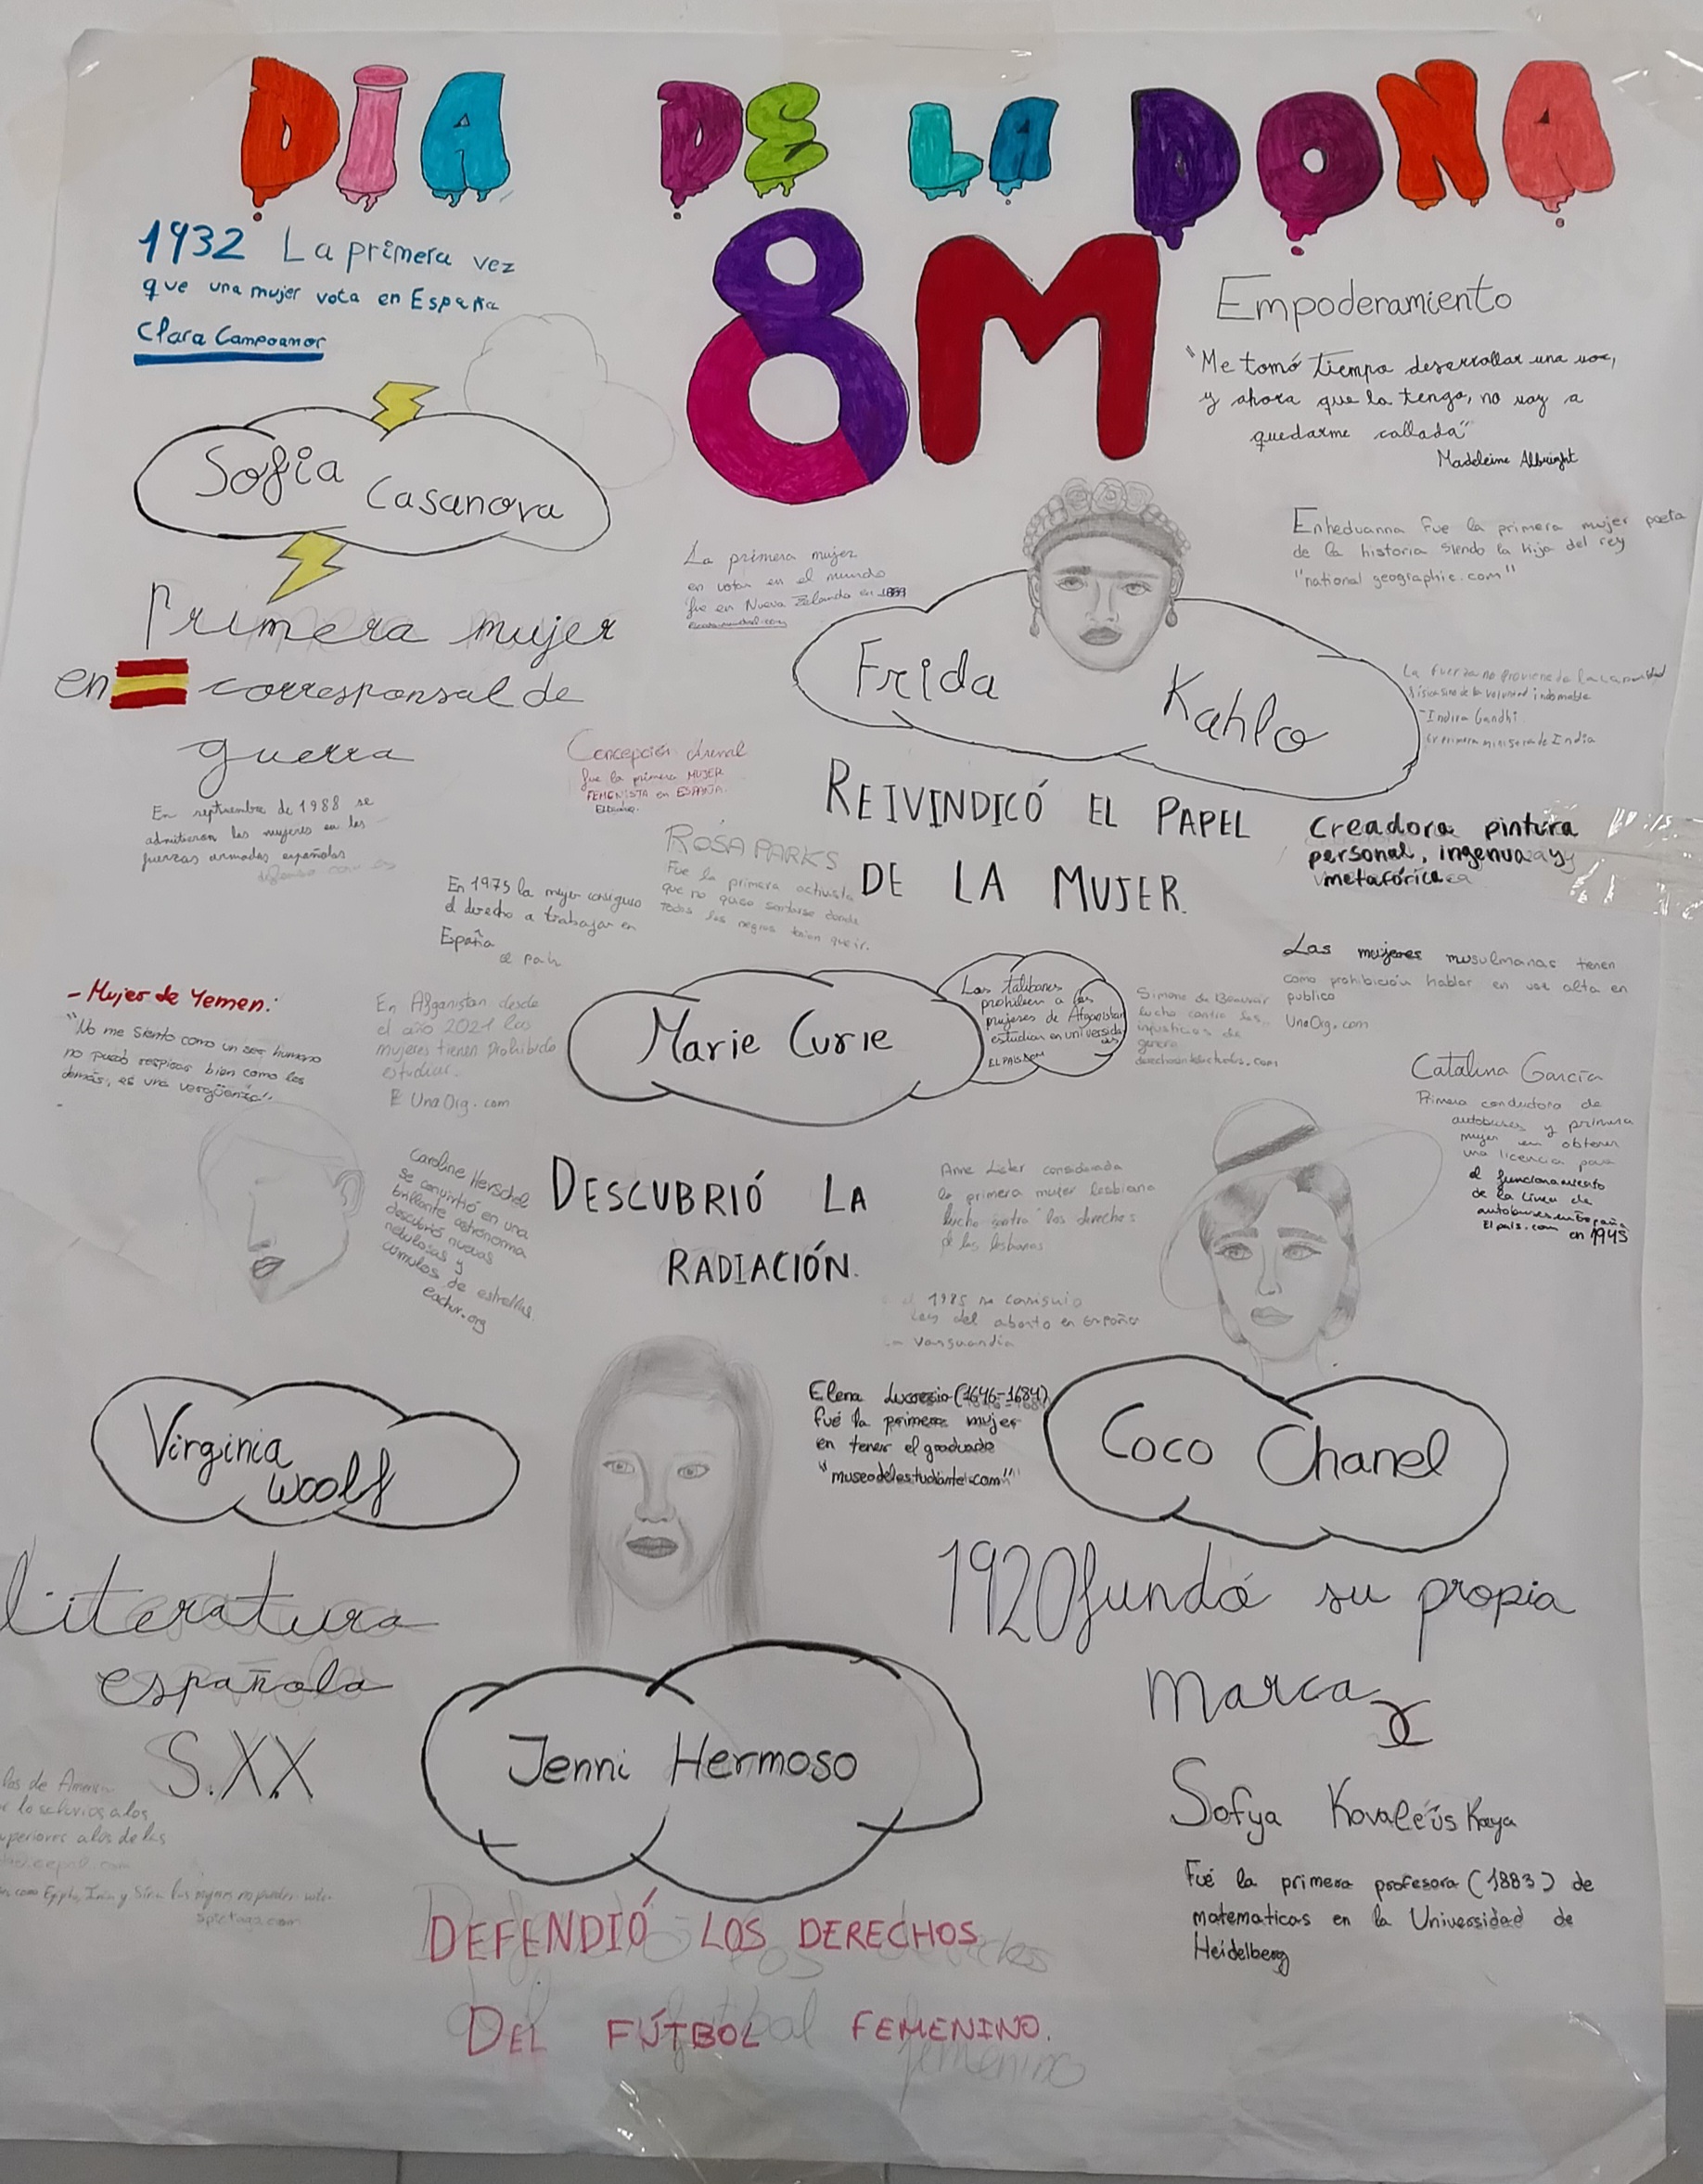 DÍA DE LA DONA
8M
1932 La primera vez
que una mujer vota en España
Clara Campoamor
Empoderamiento
"Me tomó tiempo desarrollar una voz,
y ahora que la tengo, no voy a
quedarme callada"
Madeleine Albright
Sofia Casanova
Primera mujer
en corresponsal de
guerra
En septiembre de 1988 se
admitieron las mujeres en las
fuerzas armadas españolas
La primera mujer
en votar en el mundo
fue en Nueva Zelanda en
Enheduanna fue la primera mujer poeta
de la historia siendo la hija del rey
"national geographic.com"
Frida Kahlo
REIVINDICÓ EL PAPEL
DE LA MUJER.
Creadora pintura
personal, ingenua y
metafórica
La fuerza no proviene de la capacidad
física sino de la voluntad indomable
-Indira Gandhi
primera ministra de India
Concepción Arenal
fue la primera MUJER
FEMENISTA en ESPAÑA.
ROSA PARKS
Fue la primera activista
que no quiso sentarse donde
todos los negros tenian que ir.
En 1975 la mujer consiguio
el derecho a trabajar en
España
el país
- Mujer de Yemen:
"No me siento como un ser humano
no puedo respirar bien como los
demás, es una vergüenza".
En Afganistan desde
el año 2021 las
mujeres tienen prohibido
estudiar.
UnaOrg.com
Marie Curie
Los talibanes
prohiben a las
mujeres de Afganistan
estudiar en universidades
EL PAIS.COM
DESCUBRIÓ LA
RADIACIÓN.
Simone de Beauvoir
lucho contra las
injusticias de
genero
Las mujeres musulmanas tienen
como prohibición hablar en voz alta en
publico
UnaOrg.com
Catalina García
Primera conductora de
autobuses y primera
mujer en obtener
una licencia para
el funcionamiento
de la línea de
autobuses en España
El país.com en 1945
Caroline Herschel
se convirtió en una
brillante astronoma
descubrió nuevas
nebulosas y
cúmulos de estrellas.
Anne Lister considerada
la primera mujer lesbiana
lucho contra los derechos
de las lesbianas
1985 se consiguio
ley del aborto en España
La vanguardia
Virginia
woolf
literatura
española
S.XX
Elena Lucrezia (1646-1684)
fué la primera mujer
en tener el graduado
"museodelestudiante.com"
Coco Chanel
1920 fundó su propia
marca
Jenni Hermoso
DEFENDIÓ LOS DERECHOS
DEL FÚTBOL FEMENINO.
Sofya Kovaleúskaya
Fué la primera profesora (1883) de
matematicas en la Universidad de
Heidelberg
los de America